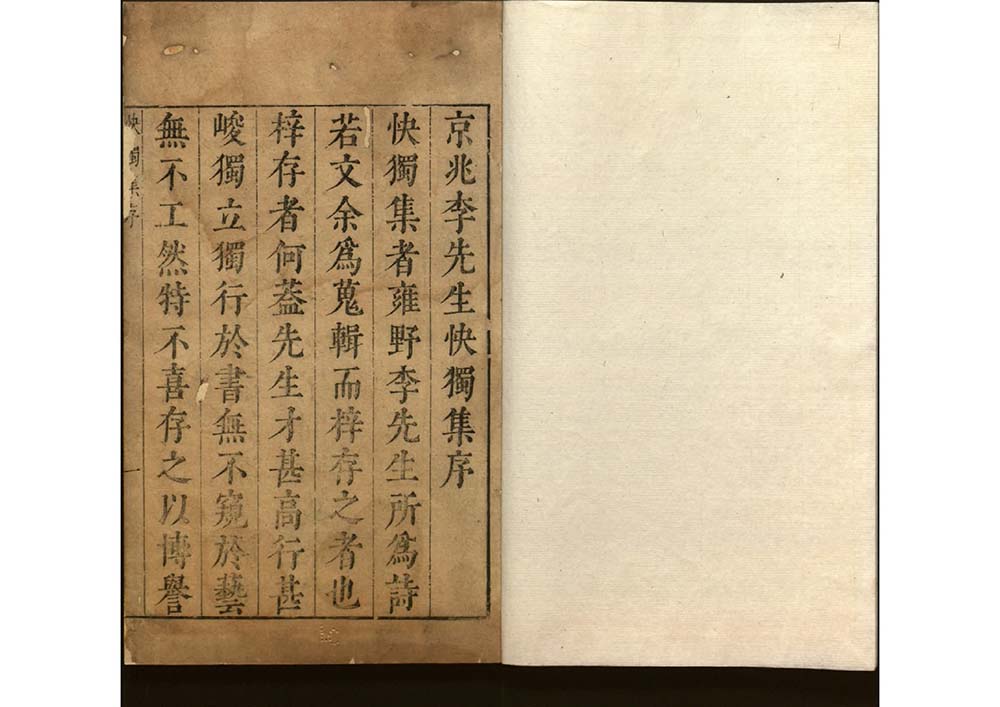 京兆李先生快獨集序
快獨集者雍野李先生所爲詩
若文余爲蒐輯而梓存之者也
梓存者何葢先生才甚高行甚
峻獨立獨行於書無不窺於藝
無不工然特不喜存之以博譽
快獨集序
一